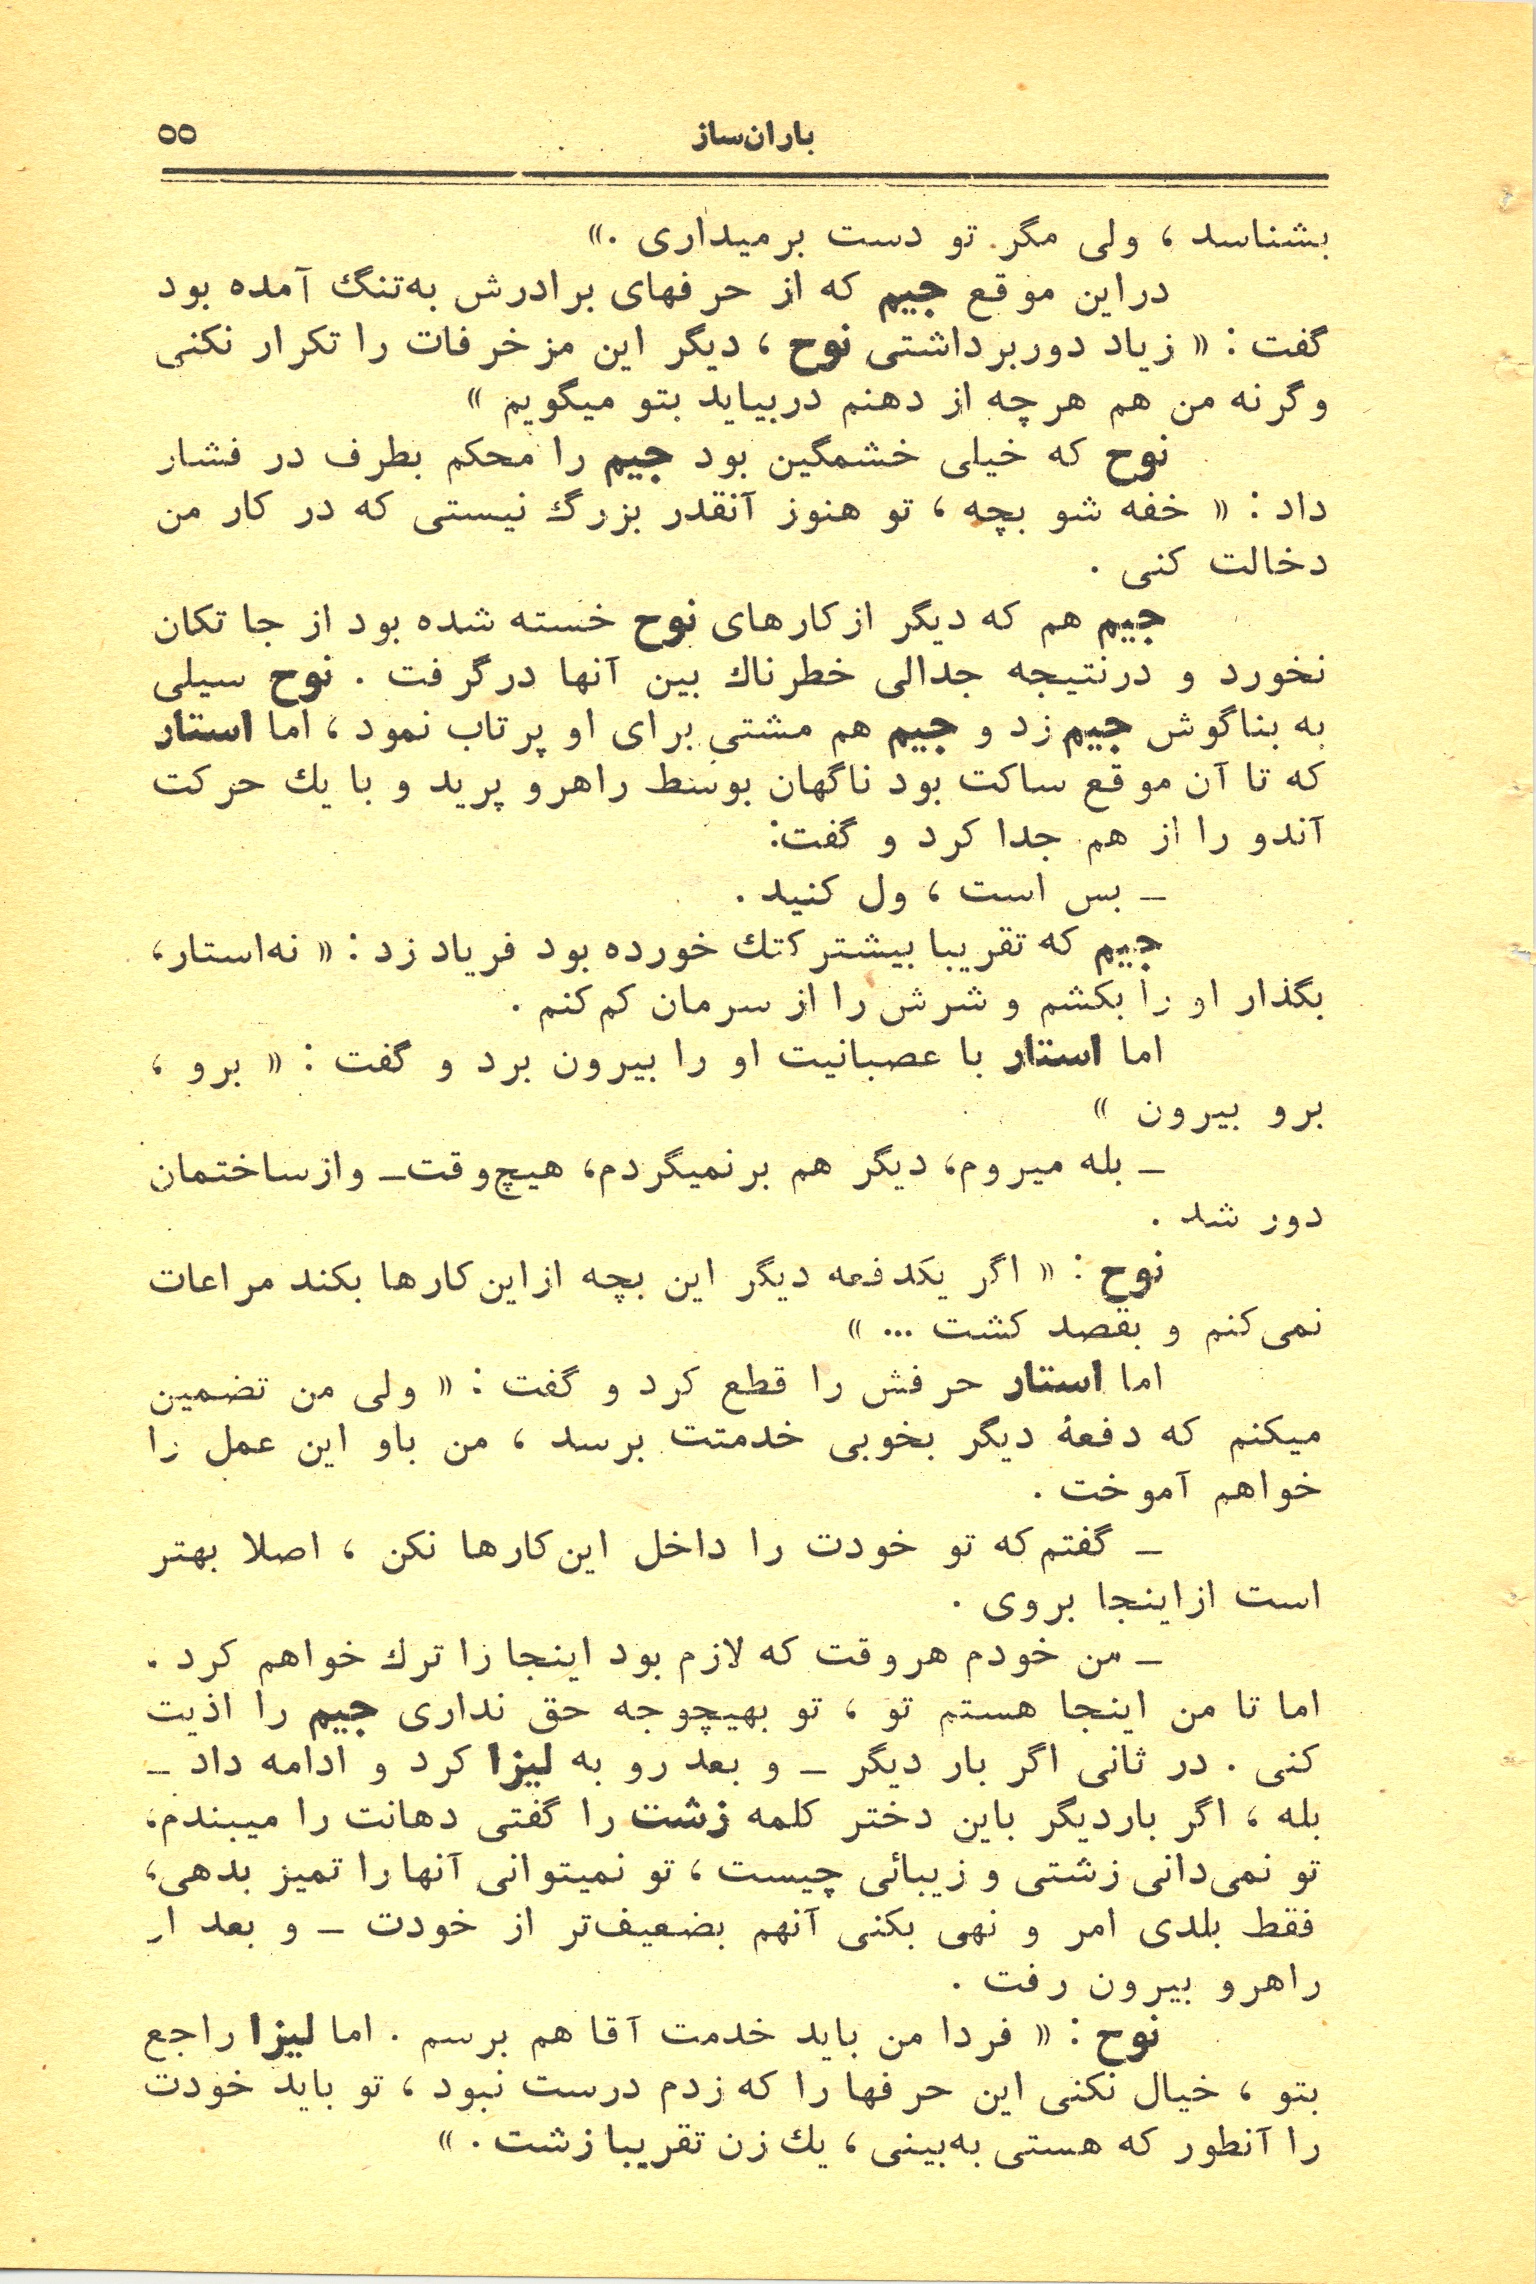 باران‌ساز ۵۵
بشناسد ، ولی مگر تو دست برمیداری .»
دراین موقع جیم که از حرفهای برادرش به‌تنگ آمده بود
گفت : « زیاد دوربرداشتی نوح ، دیگر این مزخرفات را تکرار نکنی
وگرنه من هم هرچه از دهنم دربیاید بتو میگویم »
نوح که خیلی خشمگین بود جیم را محکم بطرف در فشار
داد : « خفه شو بچه ، تو هنوز آنقدر بزرگ نیستی که در کار من
دخالت کنی .
جیم هم که دیگر ازکارهای نوح خسته شده بود از جا تکان
نخورد و درنتیجه جدالی خطرناك بین آنها درگرفت . نوح سیلی
به بناگوش جیم زد و جیم هم مشتی برای او پرتاب نمود ، اما استار
که تا آن موقع ساکت بود ناگهان بوسط راهرو پرید و با یك حرکت
آندو را از هم جدا کرد و گفت:
ـ بس است ، ول کنید .
جیم که تقریبا بیشتر کتك خورده بود فریاد زد : « نه‌استار،
بگذار او را بکشم و شرش را از سرمان کم‌کنم .
اما استار با عصبانیت او را بیرون برد و گفت : « برو ،
برو بیرون »
ـ بله میروم، دیگر هم برنمیگردم، هیچ‌وقت‌ـ وازساختمان
دور شد .
نوح : « اگر یکدفعه دیگر این بچه ازاین‌کارها بکند مراعات
نمی‌کنم و بقصد کشت ... »
اما استار حرفش را قطع کرد و گفت : « ولی من تضمین
میکنم که دفعهٔ دیگر بخوبی خدمتت برسد ، من باو این عمل را
خواهم آموخت .
ـ گفتم‌که تو خودت را داخل این‌کارها نکن ، اصلا بهتر
است ازاینجا بروی .
ـ من خودم هروقت که لازم بود اینجا را ترك خواهم کرد .
اما تا من اینجا هستم تو ، تو بهیچوجه حق نداری جیم را اذیت
کنی . در ثانی اگر بار دیگر ـ و بعد رو به لیزا کرد و ادامه داد ـ
بله ، اگر باردیگر باین دختر کلمه زشت را گفتی دهانت را میبندم،
تو نمی‌دانی زشتی و زیبائی چیست ، تو نمیتوانی آنها را تمیز بدهی،
فقط بلدی امر و نهی بکنی آنهم بضعیف‌تر از خودت ـ و بعد از
راهرو بیرون رفت .
نوح : « فردا من باید خدمت آقا هم برسم . اما لیزا راجع
بتو ، خیال نکنی این حرفها را که زدم درست نبود ، تو باید خودت
را آنطور که هستی به‌بینی ، یك زن تقریبا زشت . »